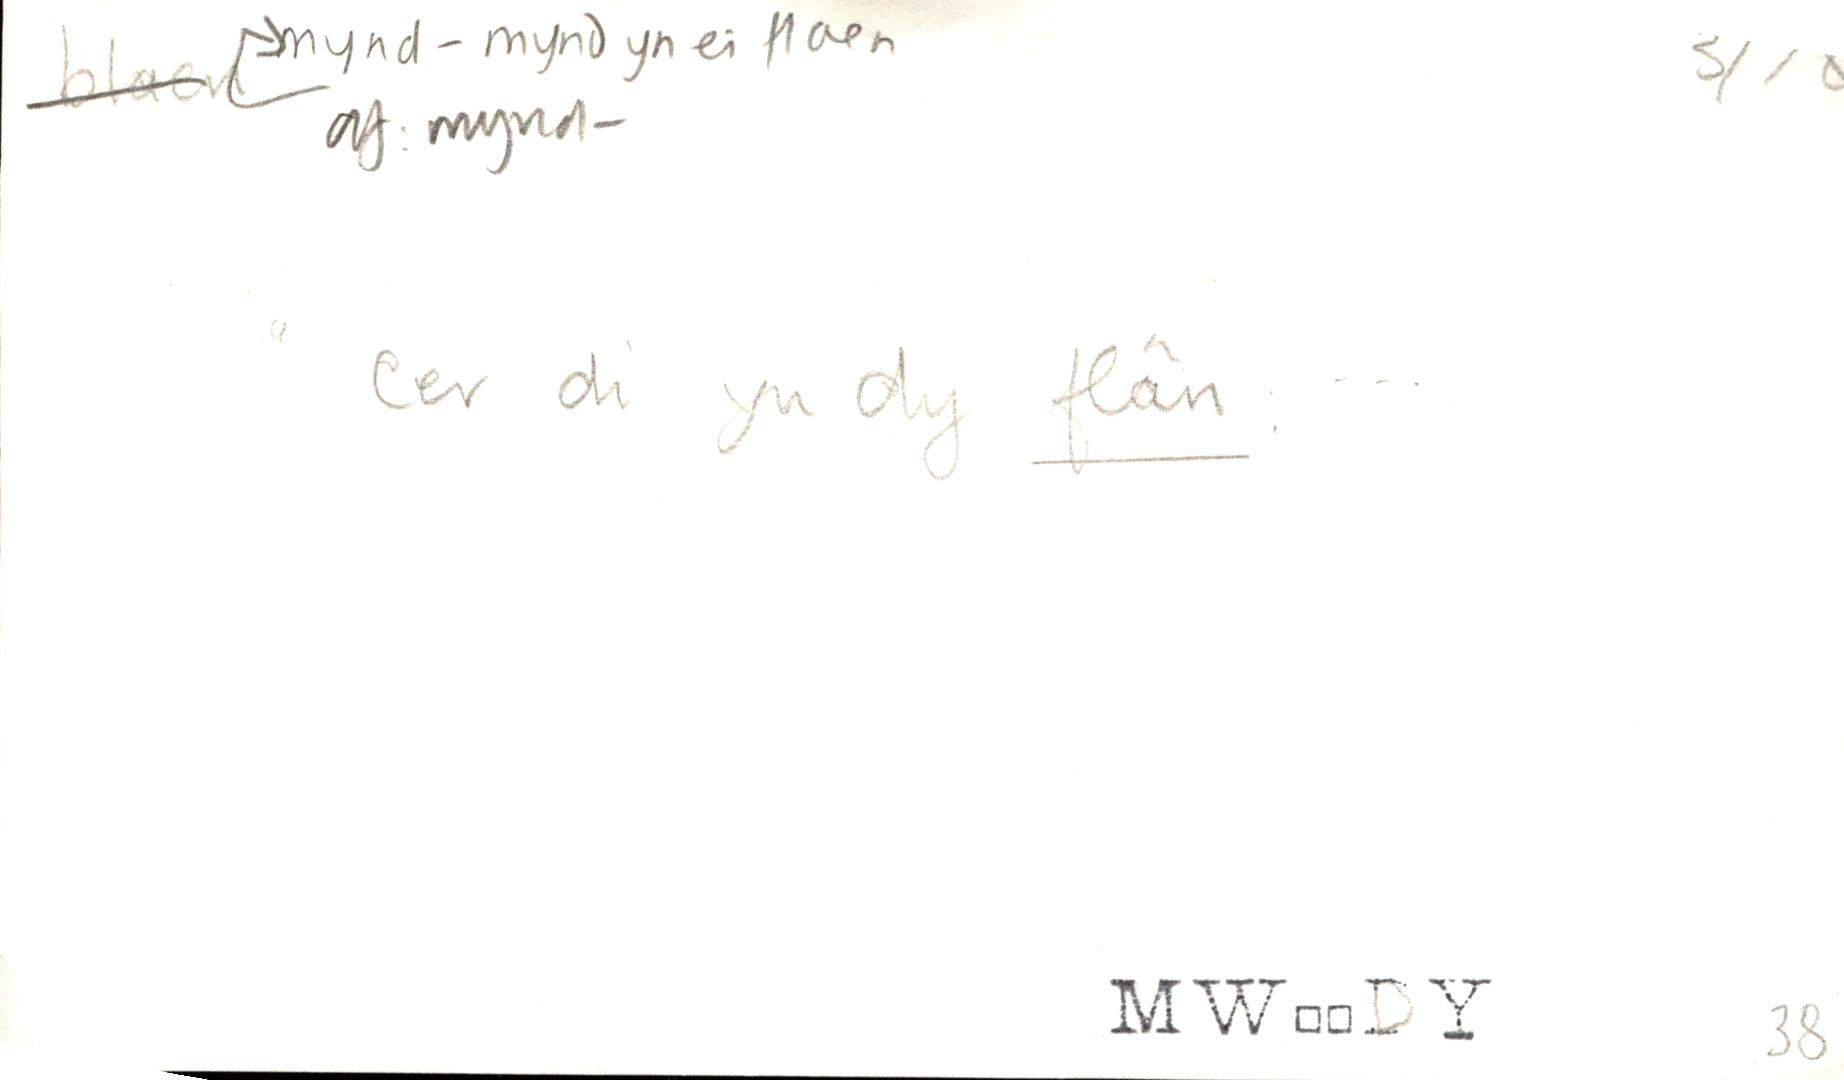 blaen mynd - mynd yn ei flaen
af: mynd-
" Cer di yn dy flân. ---
MW□□DY
38